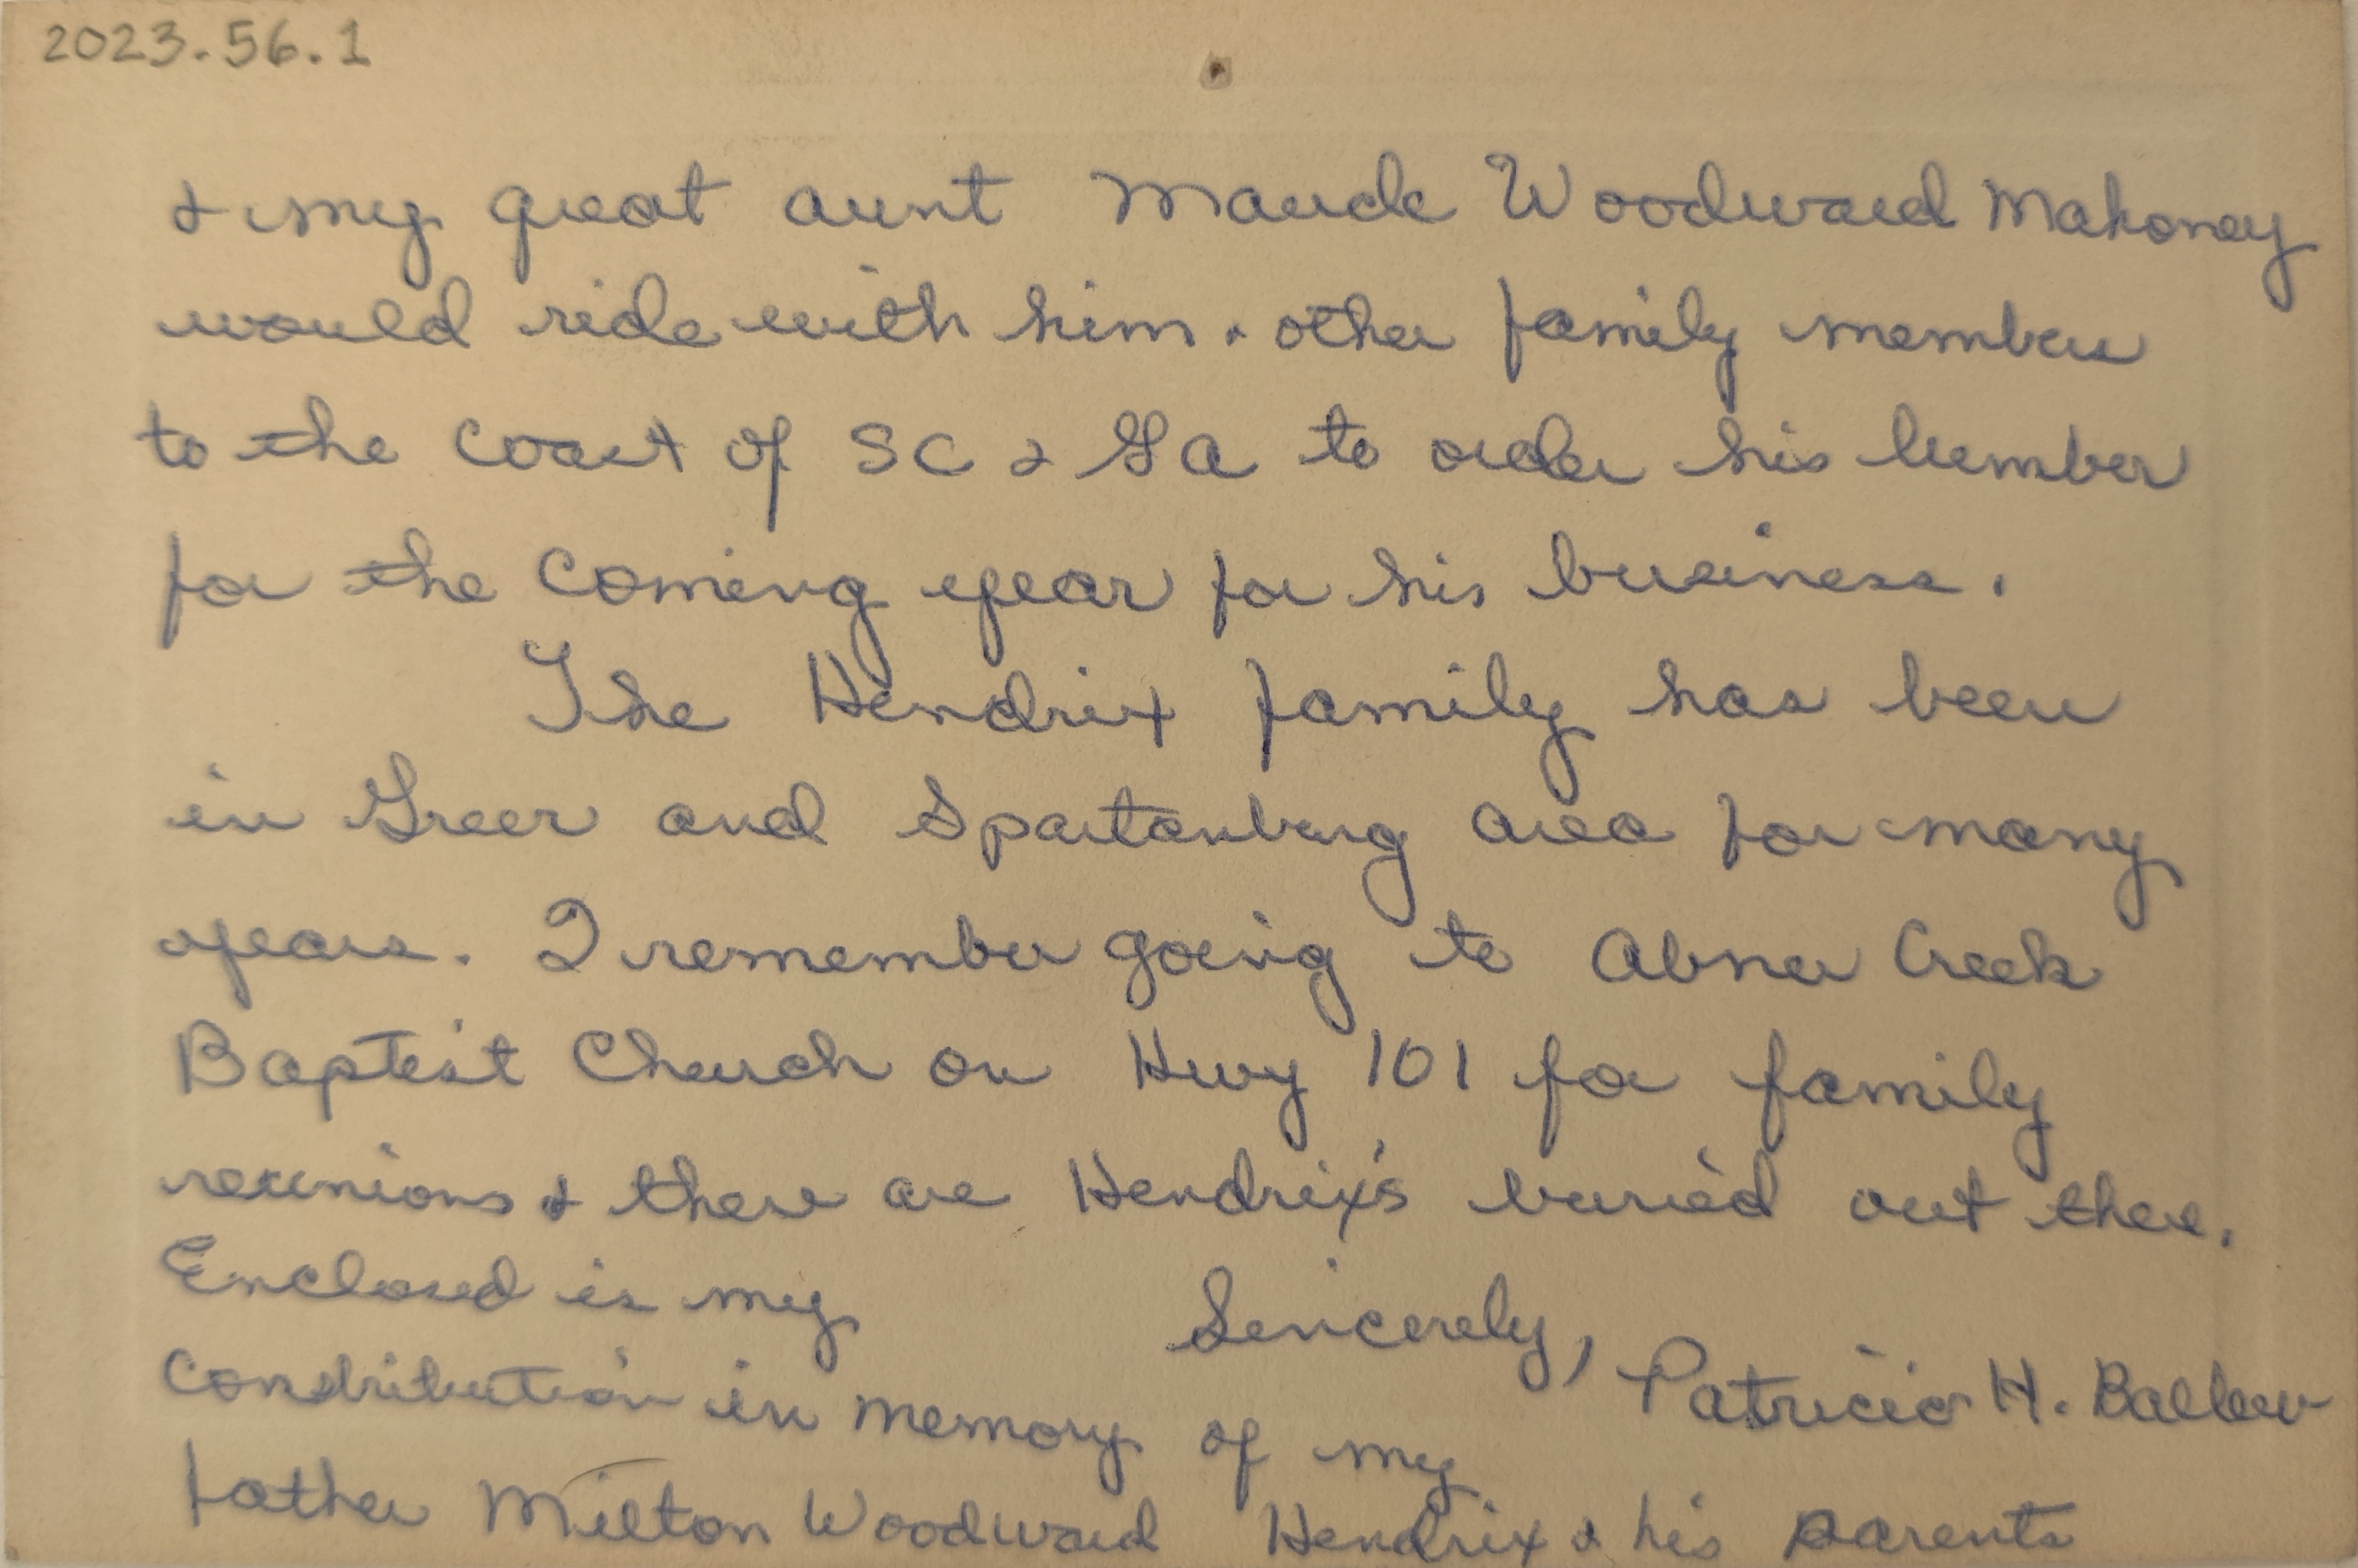 2023.56.1
& my great aunt Maude Woodward Mahoney
would ride with him & other family members
to the coast of SC & GA to order his lumber
for the coming year for his business.
The Hendrix family has been
in Greer and Spartanburg area for many
years. I remember going to Abner Creek
Baptist Church on Hwy 101 for family
reunions & there are Hendrix's buried out there.
Enclosed is my
Sincerely,
Patricia H. Ballew
contribution in memory of my
father Milton Woodward Hendrix & his parents